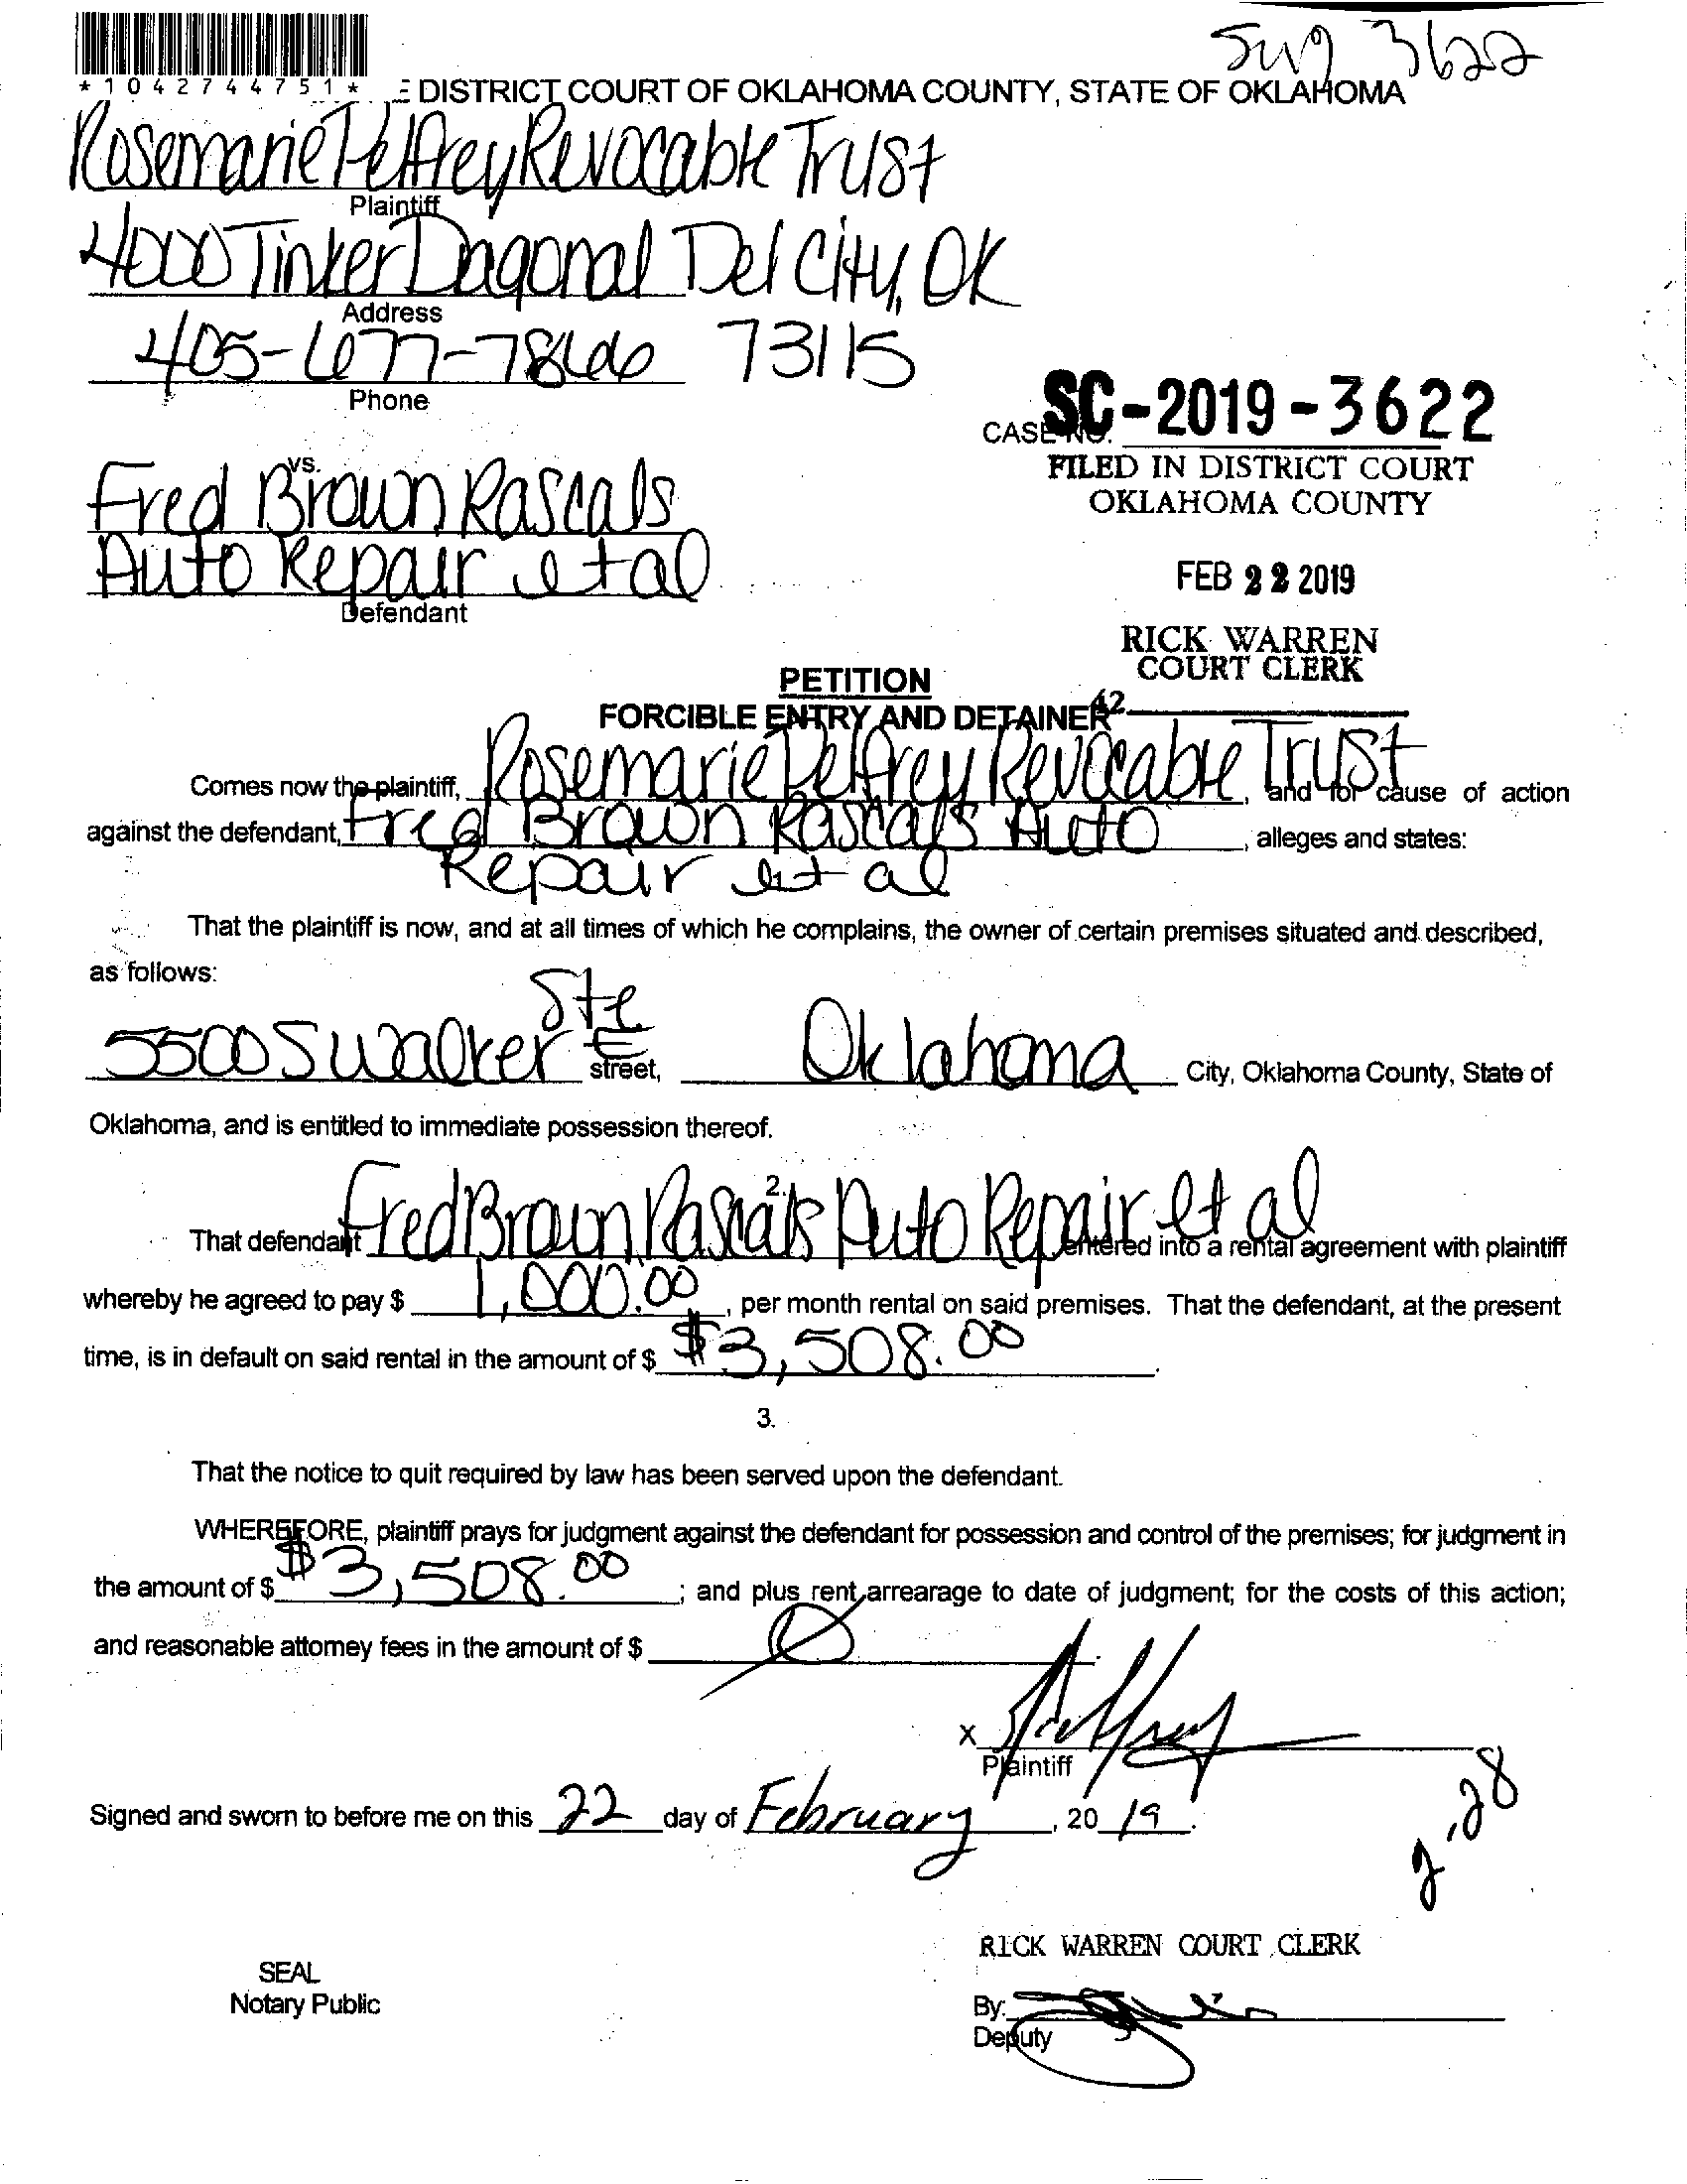 Svg 3622
*1042744751*
E DISTRICT COURT OF OKLAHOMA COUNTY, STATE OF OKLAHOMA
Rosemarie Pelfrey Revocable Trust
Plaintiff
4000 Tinker Diagonal Del City, OK
Address
405-677-7866 73115
Phone
CASE NO. SC-2019-3622
FILED IN DISTRICT COURT
OKLAHOMA COUNTY
vs.
Fred Brown Rascals
Auto Repair et al
Defendant
FEB 22 2019
RICK WARREN
COURT CLERK
PETITION
FORCIBLE ENTRY AND DETAINER
42
Comes now the plaintiff, Rosemarie Pelfrey Revocable Trust, and for cause of action
against the defendant, Fred Brown Rascals Auto, alleges and states:
Repair et al
That the plaintiff is now, and at all times of which he complains, the owner of certain premises situated and described,
as follows:
Ste
5500 S Walker E street, Oklahoma City, Oklahoma County, State of
Oklahoma, and is entitled to immediate possession thereof.
2.
That defendant Fred Brown Rascals Auto Repair et al entered into a rental agreement with plaintiff
whereby he agreed to pay $ 1,000.00, per month rental on said premises. That the defendant, at the present
time, is in default on said rental in the amount of $ $3,508.00.
3.
That the notice to quit required by law has been served upon the defendant.
WHEREFORE, plaintiff prays for judgment against the defendant for possession and control of the premises; for judgment in
the amount of $ $3,508.00; and plus rent arrearage to date of judgment; for the costs of this action;
and reasonable attorney fees in the amount of $ 0.
X Pelfrey
Plaintiff
Signed and sworn to before me on this 22 day of February, 2019.
2.28
RICK WARREN COURT CLERK
SEAL
Notary Public
By:
Deputy